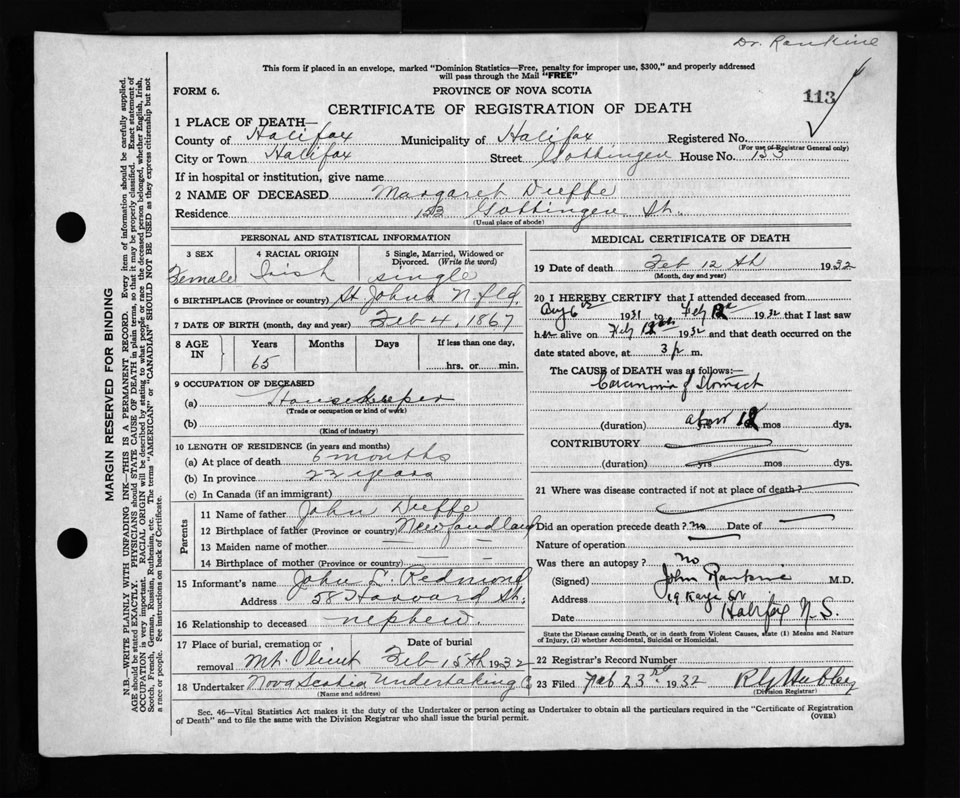 Dr. Rankine
This form if placed in an envelope, marked "Dominion Statistics—Free, penalty for improper use, $300," and properly addressed
will pass through the Mail "FREE"
FORM 6.
PROVINCE OF NOVA SCOTIA
113
CERTIFICATE OF REGISTRATION OF DEATH
1 PLACE OF DEATH—
County of Halifax Municipality of Halifax Registered No.
(For use of Registrar General only)
City or Town Halifax Street Gottingen House No. 153
If in hospital or institution, give name
2 NAME OF DECEASED Margaret Duffe
Residence 153 Gottingen St.
(Usual place of abode)
PERSONAL AND STATISTICAL INFORMATION
3 SEX 4 RACIAL ORIGIN 5 Single, Married, Widowed or
Divorced. (Write the word)
Female Irish single
6 BIRTHPLACE (Province or country) St. Johns Nfld.
7 DATE OF BIRTH (month, day and year) Feb 4, 1867
8 AGE IN Years Months Days If less than one day,
65 hrs. or min.
9 OCCUPATION OF DECEASED
(a) Housekeeper
(Trade or occupation or kind of work)
(b)
(Kind of industry)
10 LENGTH OF RESIDENCE (in years and months)
(a) At place of death 6 months
(b) In province 22 years
(c) In Canada (if an immigrant)
Parents
11 Name of father John Duffe
12 Birthplace of father (Province or country) Newfoundland
13 Maiden name of mother — —
14 Birthplace of mother (Province or country) — —
15 Informant's name John L. Redmond
Address 58 Harvard St.
16 Relationship to deceased nephew.
17 Place of burial, cremation or removal Date of burial
Mt. Olivet Feb 15th 1932
18 Undertaker Nova Scotia Undertaking Co
(Name and address)
MEDICAL CERTIFICATE OF DEATH
19 Date of death Feb 12th 1932
(Month, day and year)
20 I HEREBY CERTIFY that I attended deceased from
Aug 6th 1931 to Feby 12th 1932 that I last saw
her alive on Feby 12th 1932 and that death occurred on the
date stated above, at 3 p. m.
The CAUSE of DEATH was as follows:—
Carcinoma of Stomach
(duration) about yrs 12 mos dys.
CONTRIBUTORY
(duration) yrs mos dys.
21 Where was disease contracted if not at place of death?
Did an operation precede death? no Date of —
Nature of operation —
Was there an autopsy? no
(Signed) John Rankine M.D.
Address 19 Kaye St
Date Halifax N.S.
State the Disease causing Death, or in death from Violent Causes, state (1) Means and Nature
of Injury, (2) whether Accidental, Suicidal or Homicidal.
22 Registrar's Record Number
23 Filed Feb 23rd 1932
(Division Registrar)
Sec. 46—Vital Statistics Act makes it the duty of the Undertaker or person acting as Undertaker to obtain all the particulars required in the "Certificate of Registration
of Death" and to file the same with the Division Registrar who shall issue the burial permit.
(OVER)
MARGIN RESERVED FOR BINDING
N.B.—WRITE PLAINLY WITH UNFADING INK—THIS IS A PERMANENT RECORD. Every item of information should be carefully supplied.
AGE should be stated EXACTLY. PHYSICIANS should STATE CAUSE OF DEATH in plain terms, so that it may be properly classified. Exact statement of
OCCUPATION is very important. RACIAL ORIGIN will be described by stating to what people or race the deceased person belonged, whether English, Irish,
Scotch, French, German, Russian, Ruthenian, etc. The terms "AMERICAN" or "CANADIAN" SHOULD NOT BE USED as they express citizenship but not
a race or people. See instructions on back of Certificate.